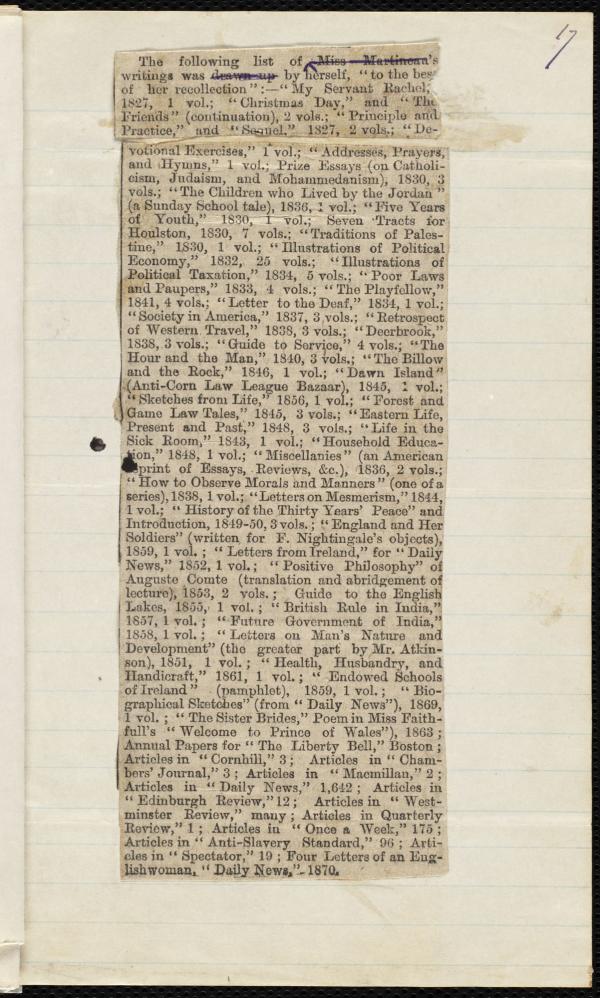 17
The following list of Miss Martineau's
writings was drawn up by herself, "to the bes
of her recollection":—"My Servant Rachel,
1827, 1 vol.; "Christmas Day," and "The
Friends" (continuation), 2 vols.; "Principle and
Practice," and "Sequel," 1827, 2 vols.; "De-
votional Exercises," 1 vol.; "Addresses, Prayers,
and Hymns," 1 vol.; Prize Essays (on Catholi-
cism, Judaism, and Mohammedanism), 1830, 3
vols.; "The Children who Lived by the Jordan"
(a Sunday School tale), 1836, 1 vol.; "Five Years
of Youth," 1830, 1 vol.; Seven Tracts for
Houlston, 1830, 7 vols.; "Traditions of Pales-
tine," 1830, 1 vol.; "Illustrations of Political
Economy," 1832, 25 vols.; "Illustrations of
Political Taxation," 1834, 5 vols.; "Poor Laws
and Paupers," 1833, 4 vols.; "The Playfellow,"
1841, 4 vols.; "Letter to the Deaf," 1834, 1 vol.;
"Society in America," 1837, 3 vols.; "Retrospect
of Western Travel," 1838, 3 vols.; "Deerbrook,"
1838, 3 vols.; "Guide to Service," 4 vols.; "The
Hour and the Man," 1840, 3 vols.; "The Billow
and the Rock," 1846, 1 vol.; "Dawn Island"
(Anti-Corn Law League Bazaar), 1845, 1 vol.;
"Sketches from Life," 1856, 1 vol.; "Forest and
Game Law Tales," 1845, 3 vols.; "Eastern Life,
Present and Past," 1848, 3 vols.; "Life in the
Sick Room," 1843, 1 vol.; "Household Educa-
tion," 1848, 1 vol.; "Miscellanies" (an American
reprint of Essays, Reviews, &c.), 1836, 2 vols.;
"How to Observe Morals and Manners" (one of a
series), 1838, 1 vol.; "Letters on Mesmerism," 1844,
1 vol.; "History of the Thirty Years' Peace" and
Introduction, 1849-50, 3 vols.; "England and Her
Soldiers" (written for F. Nightingale's objects),
1859, 1 vol.; "Letters from Ireland," for "Daily
News," 1852, 1 vol.; "Positive Philosophy" of
Auguste Comte (translation and abridgement of
lecture), 1853, 2 vols.; Guide to the English
Lakes, 1855, 1 vol.; "British Rule in India,"
1857, 1 vol.; "Future Government of India,"
1858, 1 vol.; "Letters on Man's Nature and
Development" (the greater part by Mr. Atkin-
son), 1851, 1 vol.; "Health, Husbandry, and
Handicraft," 1861, 1 vol.; "Endowed Schools
of Ireland" (pamphlet), 1859, 1 vol.; "Bio-
graphical Sketches" (from "Daily News"), 1869,
1 vol.; "The Sister Brides," Poem in Miss Faith-
full's "Welcome to Prince of Wales"), 1863;
Annual Papers for "The Liberty Bell," Boston;
Articles in "Cornhill," 3; Articles in "Cham-
bers' Journal," 3; Articles in "Macmillan," 2;
Articles in "Daily News," 1,642; Articles in
"Edinburgh Review," 12; Articles in "West-
minster Review," many; Articles in Quarterly
Review," 1; Articles in "Once a Week," 175;
Articles in "Anti-Slavery Standard," 96; Arti-
cles in "Spectator," 19; Four Letters of an Eng-
lishwoman, "Daily News,"-1870.